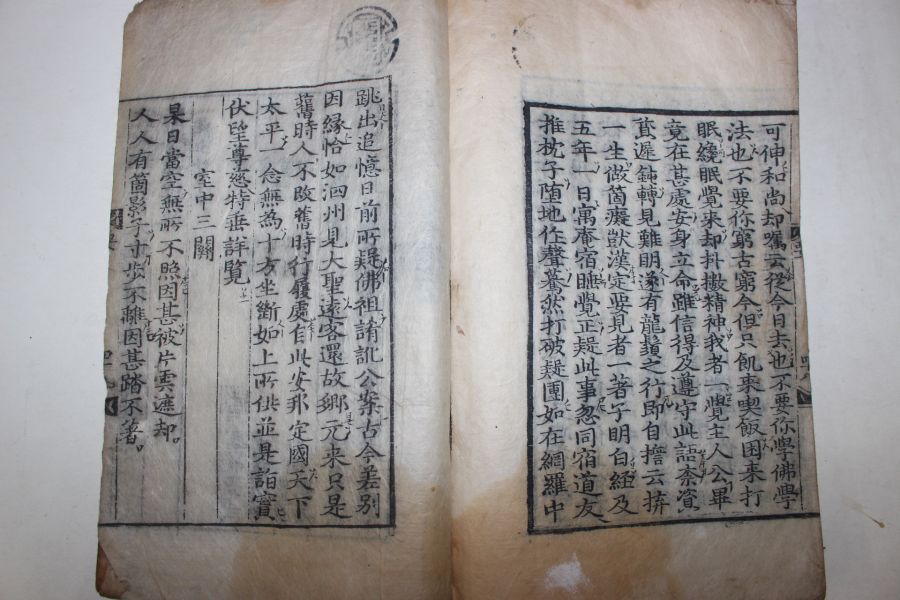 可伸和尚却囑云從今日去也不要你學佛學
法也不要你窮古窮今但只飢來喫飯困来打
眠纔眠覺來却抖擻精神我者一覺主人公畢
竟在甚處安身立命雖信得及遵守此語柰資
質遲鈍轉見難明遂有龍鬚之行即自擔云拚
一生做箇癡獃漢定要見者一著子明白經及
五年一日寓庵宿睡覺正疑此事忽同宿道友
推枕子堕地作聲驀然打破疑團如在網羅中
跳出追憶日前所疑佛祖誵訛公案古今差別
因緣恰如泗州見大聖遠客還故鄉元来只是
舊時人不改舊時行履處自此安邦定國天下
太平一念無為十方坐斷如上所供並是詣實
伏望尊慈特垂詳覧
室中三關
杲日當空無所不照因甚被片雲遮却。
人人有箇影子寸步不離因甚踏不著。